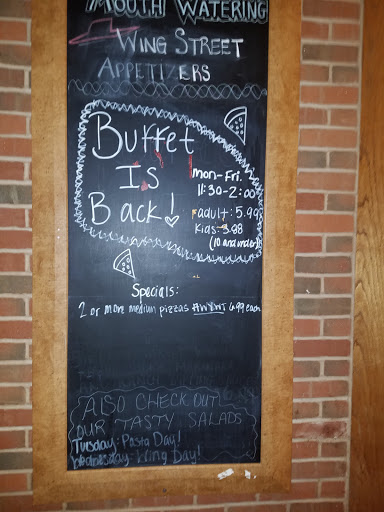 MOUTH WATERING
WING STREET
APPETIZERS
Buffet
Is
Back!
mon-Fri.
11:30-2:00
adult: 5.99
Kids-3.88
(10 and under)
Specials:
2 or more medium pizzas #WYWT 6.99 each
Also CHECK OUT
OUR TASTY SALADS
Tuesday: Pasta Day!
Wednesday: Wing Day!